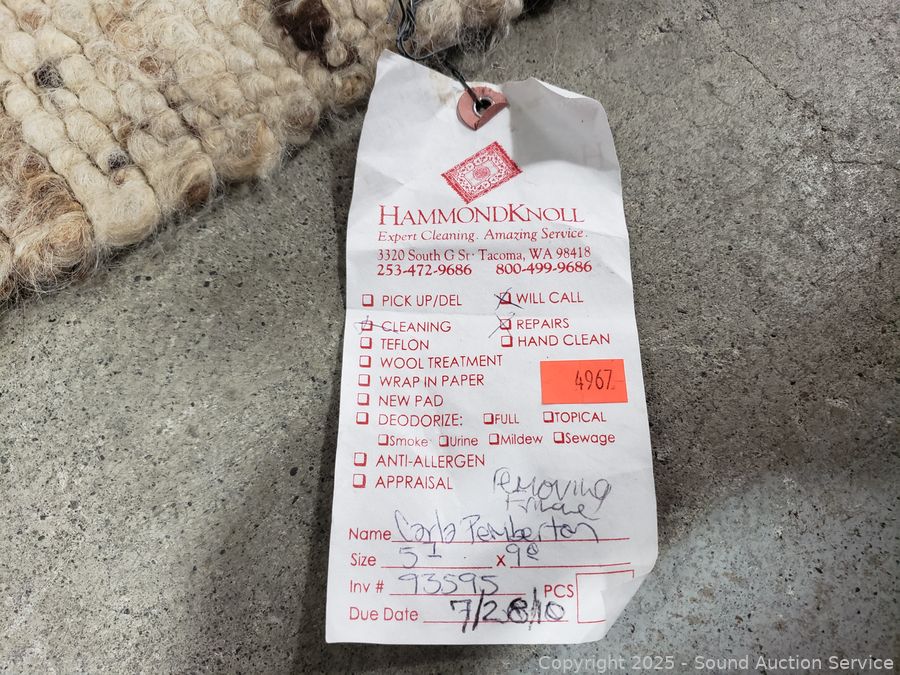 HAMMONDKNOLL
Expert Cleaning. Amazing Service.
3320 South G St · Tacoma, WA 98418
253-472-9686 800-499-9686
PICK UP/DEL WILL CALL
CLEANING REPAIRS
TEFLON HAND CLEAN
WOOL TREATMENT
WRAP IN PAPER
4967
NEW PAD
DEODORIZE: FULL TOPICAL
Smoke Urine Mildew Sewage
ANTI-ALLERGEN
APPRAISAL
Removing
Name Carla Pemberton
Size 5 1 x 9 8
Inv # 93595 PCS
Due Date 7/28/10
Copyright © 2025 - Sound Auction Service